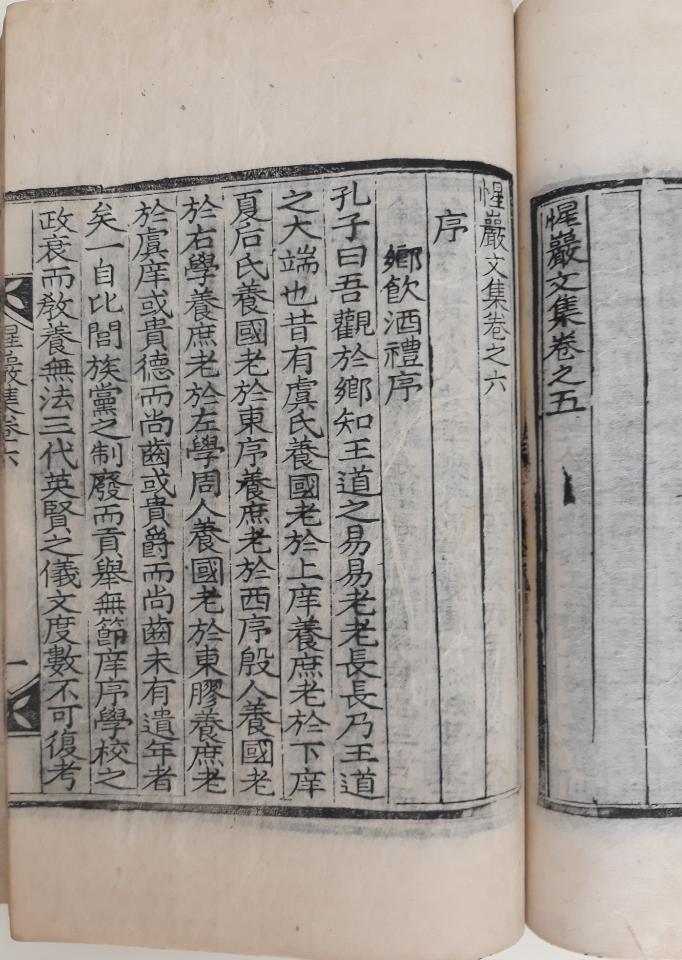 惺巖文集卷之五
惺巖文集卷之六
序
鄕飮酒禮序
孔子曰吾觀於鄕知王道之易易老老長長乃王道
之大端也昔有虞氏養國老於上庠養庶老於下庠
夏后氏養國老於東序養庶老於西序殷人養國老
於右學養庶老於左學周人養國老於東膠養庶老
於虞庠或貴德而尚齒或貴爵而尚齒未有遺年者
矣一自比閭族黨之制廢而貢舉無節庠序學校之
政衰而敎養無法三代英賢之儀文度數不可復考
惺巖集卷六
一